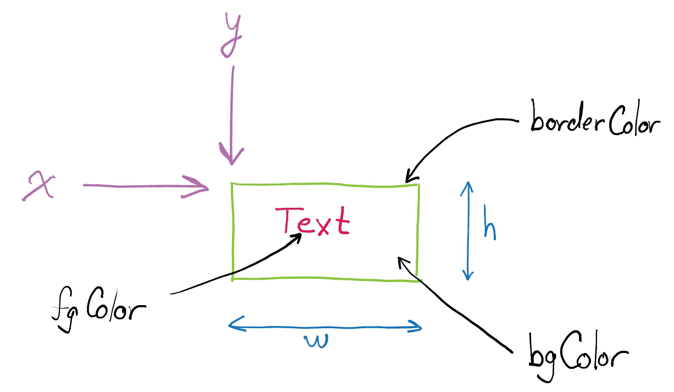 y
borderColor
x
Text
h
fgColor
w
bgColor